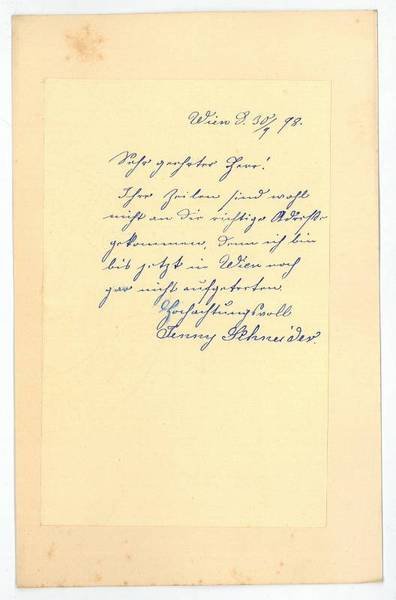 Wien d. 30/9 98.
Sehr geehrter Herr!
Ihre Zeilen sind wohl
nicht an die richtige Adresse
gekommen, denn ich bin
bis jetzt in Wien noch
gar nicht aufgetreten.
Hochachtungsvoll
Jenny Schneider.